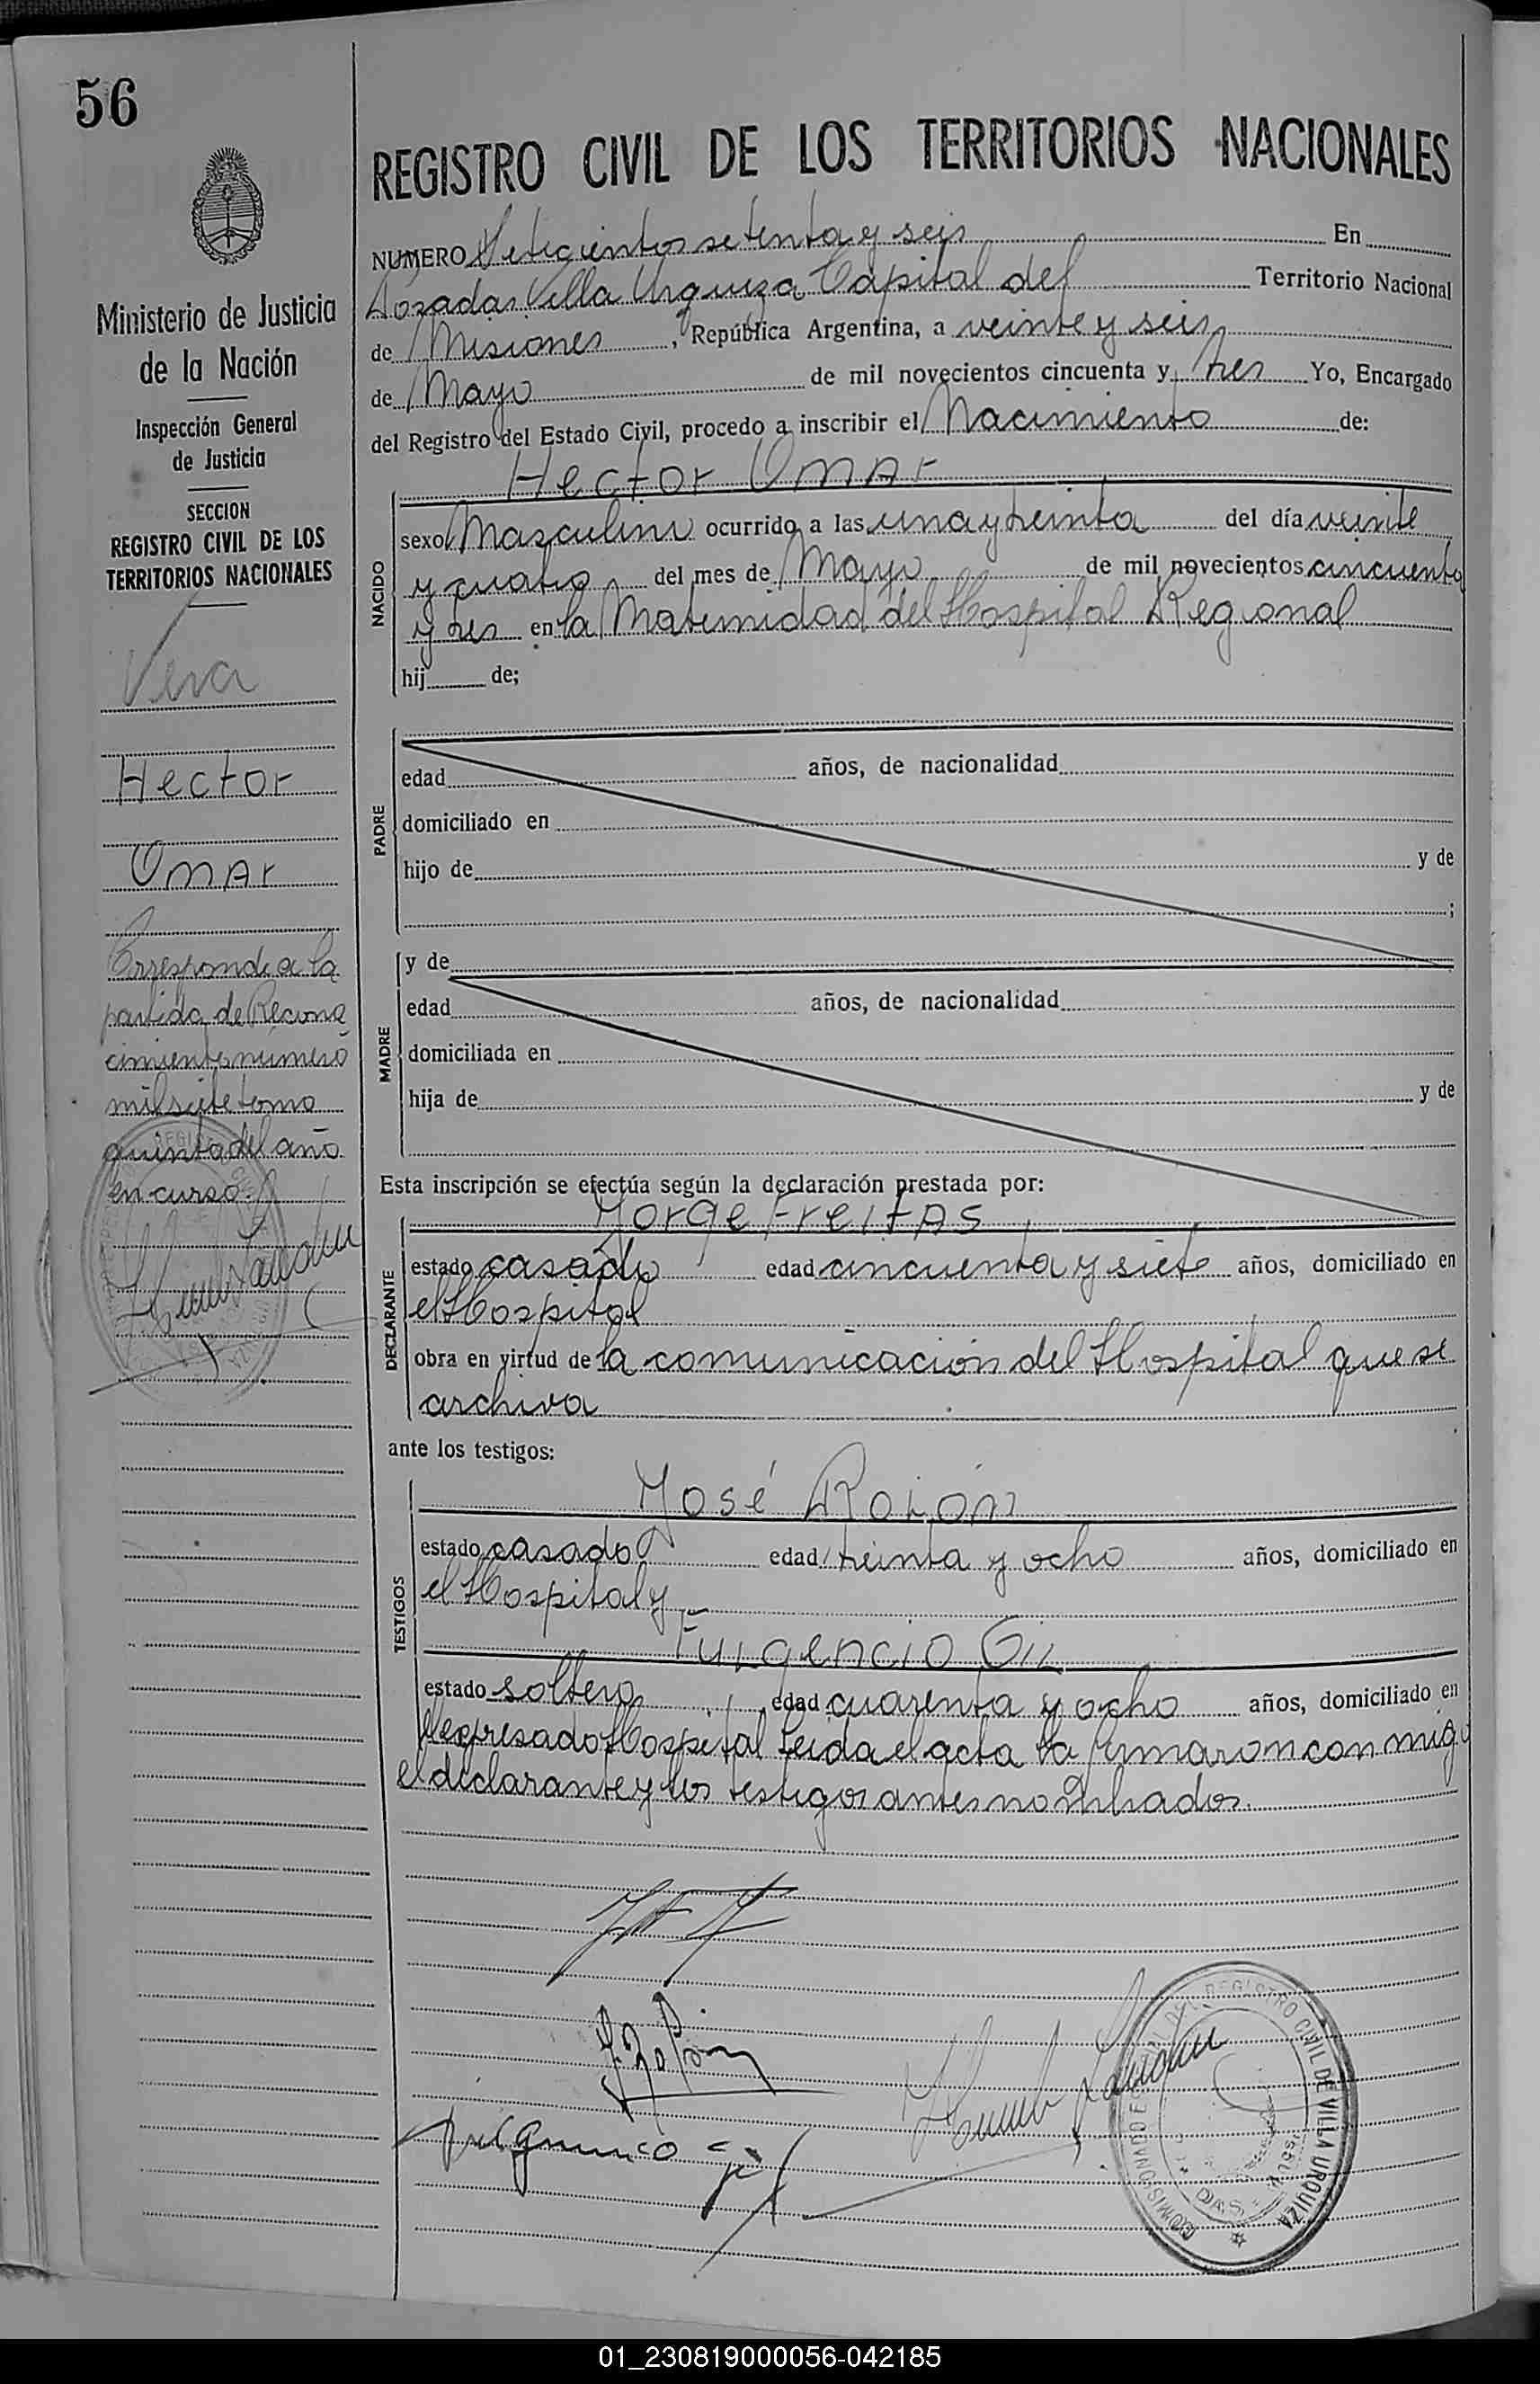 56
REGISTRO CIVIL DE LOS TERRITORIOS NACIONALES
NUMERO Seteciento setenta y seis En
Posadas Villa Urquiza Capital del Territorio Nacional
de Misiones, República Argentina, a veinte y seis
de Mayo de mil novecientos cincuenta y tres Yo, Encargado
del Registro del Estado Civil, procedo a inscribir el Nacimiento de:
Hector Omar
NACIDO
sexo Masculino ocurrido a las una y treinta del día veinte
y cuatro del mes de Mayo de mil novecientos cincuenta
y tres en la Maternidad del Hospital Regional
hij de;
PADRE
edad años, de nacionalidad
domiciliado en
hijo de y de
;
MADRE
y de
edad años, de nacionalidad
domiciliada en
hija de y de
Esta inscripción se efectúa según la declaración prestada por:
Jorge Freitas
DECLARANTE
estado casado edad cincuenta y siete años, domiciliado en
el Hospital
obra en virtud de la comunicación del Hospital que se
archiva
ante los testigos:
TESTIGOS
José Rolón
estado casado edad treinta y ocho años, domiciliado en
el Hospital y
Fulgencio Gil
estado soltero edad cuarenta y ocho años, domiciliado en
el expresado Hospital Leida el acta la firmaron conmigo
el declarante y los testigos antes nombrados.
Ministerio de Justicia
de la Nación
Inspección General
de Justicia
SECCION
REGISTRO CIVIL DE LOS
TERRITORIOS NACIONALES
Vera
Hector
Omar
Corresponde a la
partida de Recono
cimiento número
mil siete tomo
quinto del año
en curso.
REGISTRO CIVIL DE VILLA URQUIZA
01_230819000056-042185